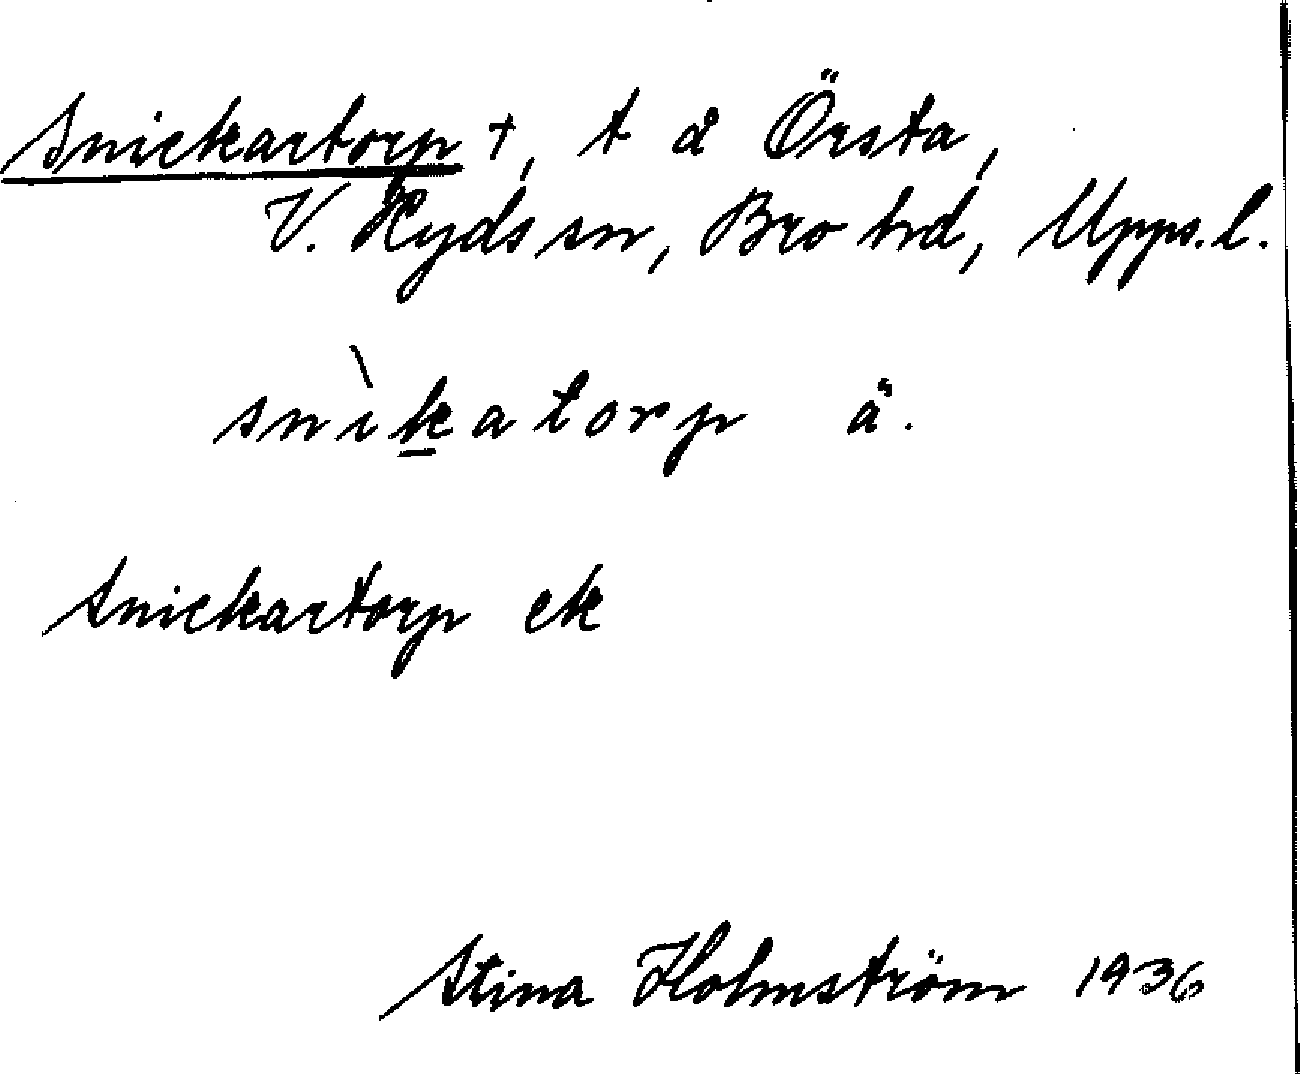 Snickartorp †, t å Örsta,
V. Ryds sn, Bro hd, Uppl.
snìkatorp ä.
Snickartorp ek
Stina Holmström 1936